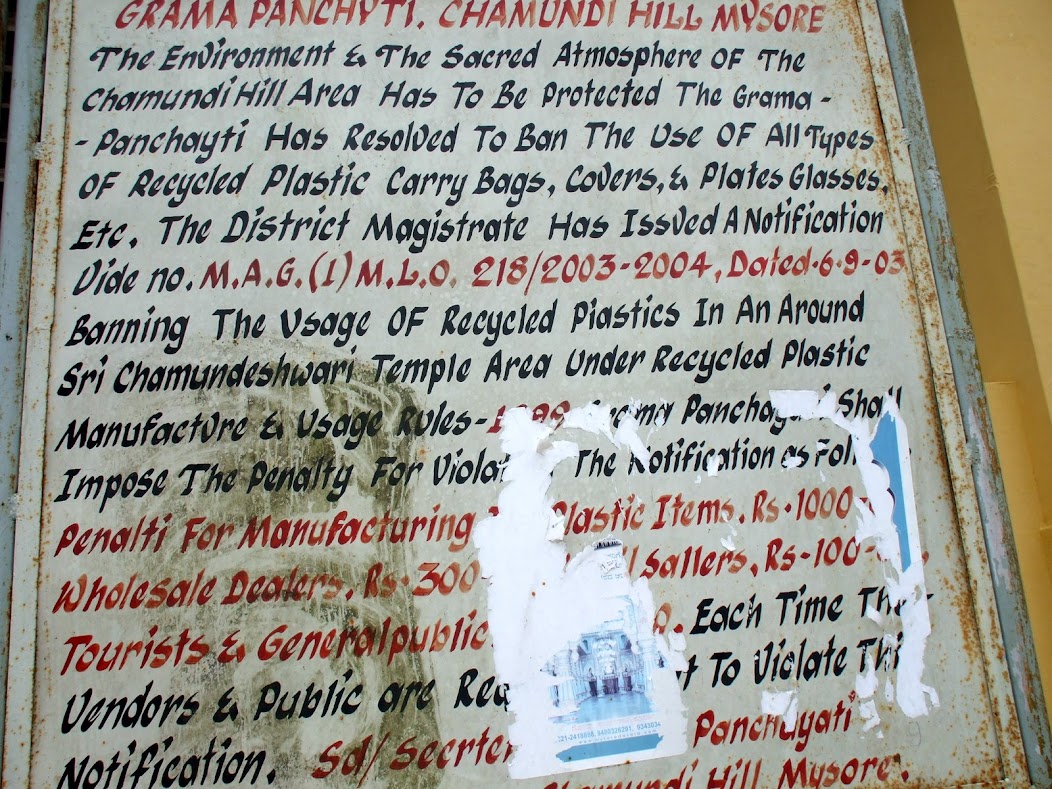 GRAMA PANCHYTI. CHAMUNDI HILL MYSORE
The Environment & The Sacred Atmosphere OF The
Chamundi Hill Area Has To Be Protected The Grama -
- Panchayti Has Resolved To Ban The Use OF All Types
OF Recycled Plastic Carry Bags, Covers, & Plates Glasses,
Etc. The District Magistrate Has Issved A Notification
Vide no. M.A.G.(1) M.L.O. 218/2003-2004, Dated.6.9-03
Banning The Usage OF Recycled Piastics In An Around
Sri Chamundeshwari Temple Area Under Recycled Plastic
Manufacture & Usage Rules - Panchayati Shall
Impose The Penalty For The Notification as
Penalti For Manufacturing Plastic Items, Rs. 1000
Wholesale Dealers, Rs. 300 Sallers, Rs-100-
Tourists & General public Each Time The
Vendors & Public are To Violate Thi
Notification. Sd/ Panchayati
Chamundi Hill Mysore.